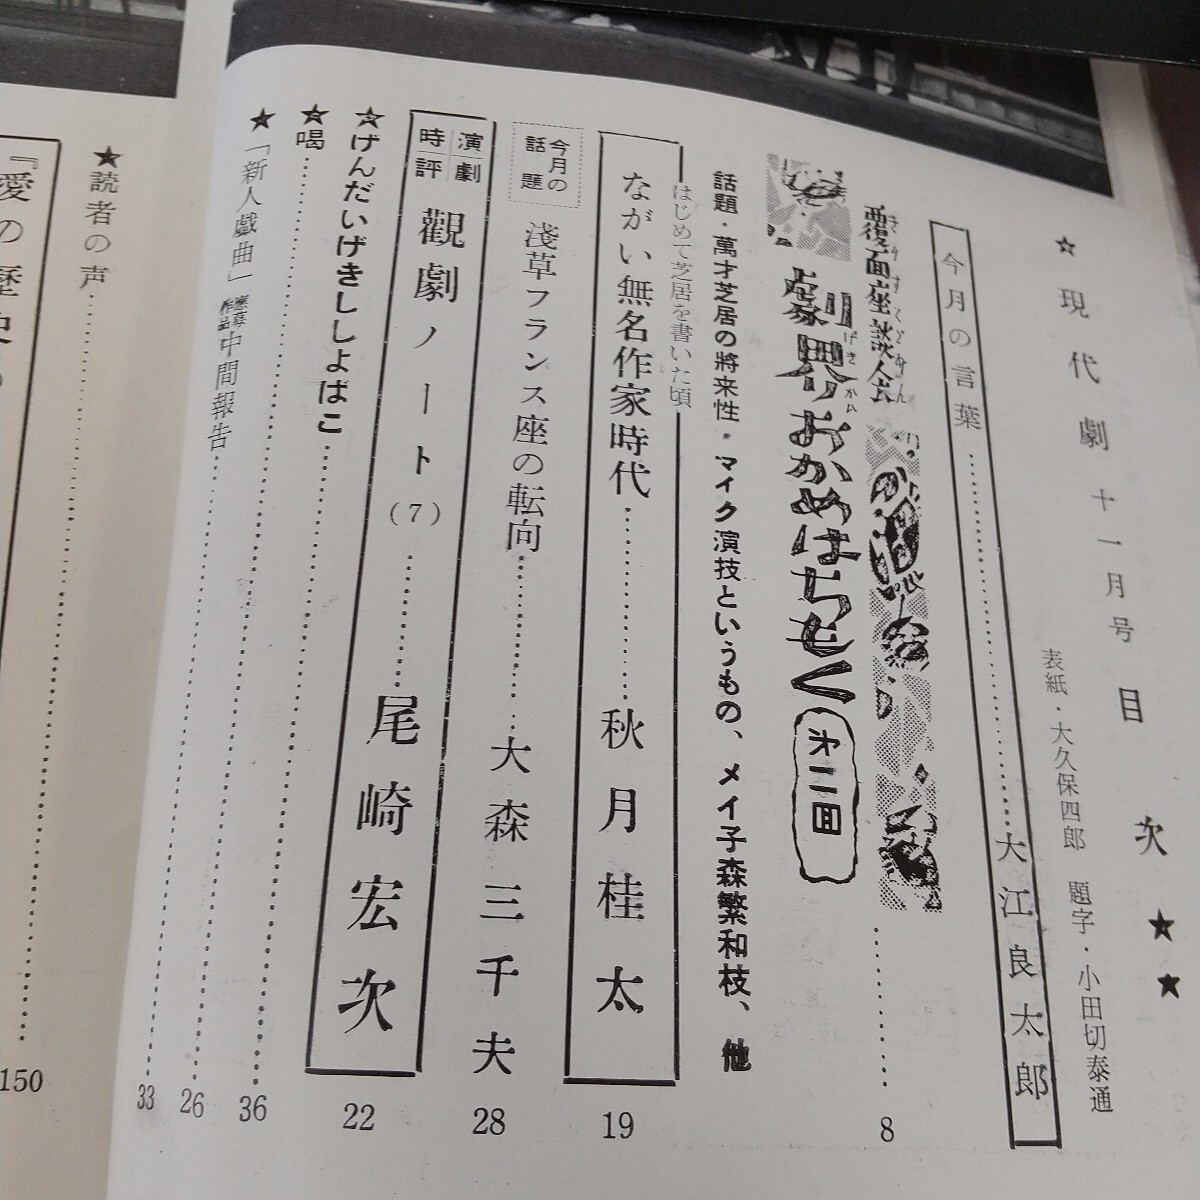 ☆ 現代劇 十一月号 目次 ★★
表紙・大久保四郎 題字・小田切泰通
今月の言葉……………大江良太郎
覆面座談会
劇界おかめはちもく 第二回……8
話題・萬才芝居の將来性・マイク演技というもの、メイ子森繁和枝、他
はじめて芝居を書いた頃
ながい無名作家時代…………秋月桂太 19
今月の話題
淺草フランス座の転向…………大森三千夫 28
演劇時評
觀劇ノート(7)…………尾崎宏次 22
☆げんだいげきししよばこ……………36
☆喝……………26
★「新人戯曲」應募作品中間報告……………33
★読者の声……………150
『愛の歴史